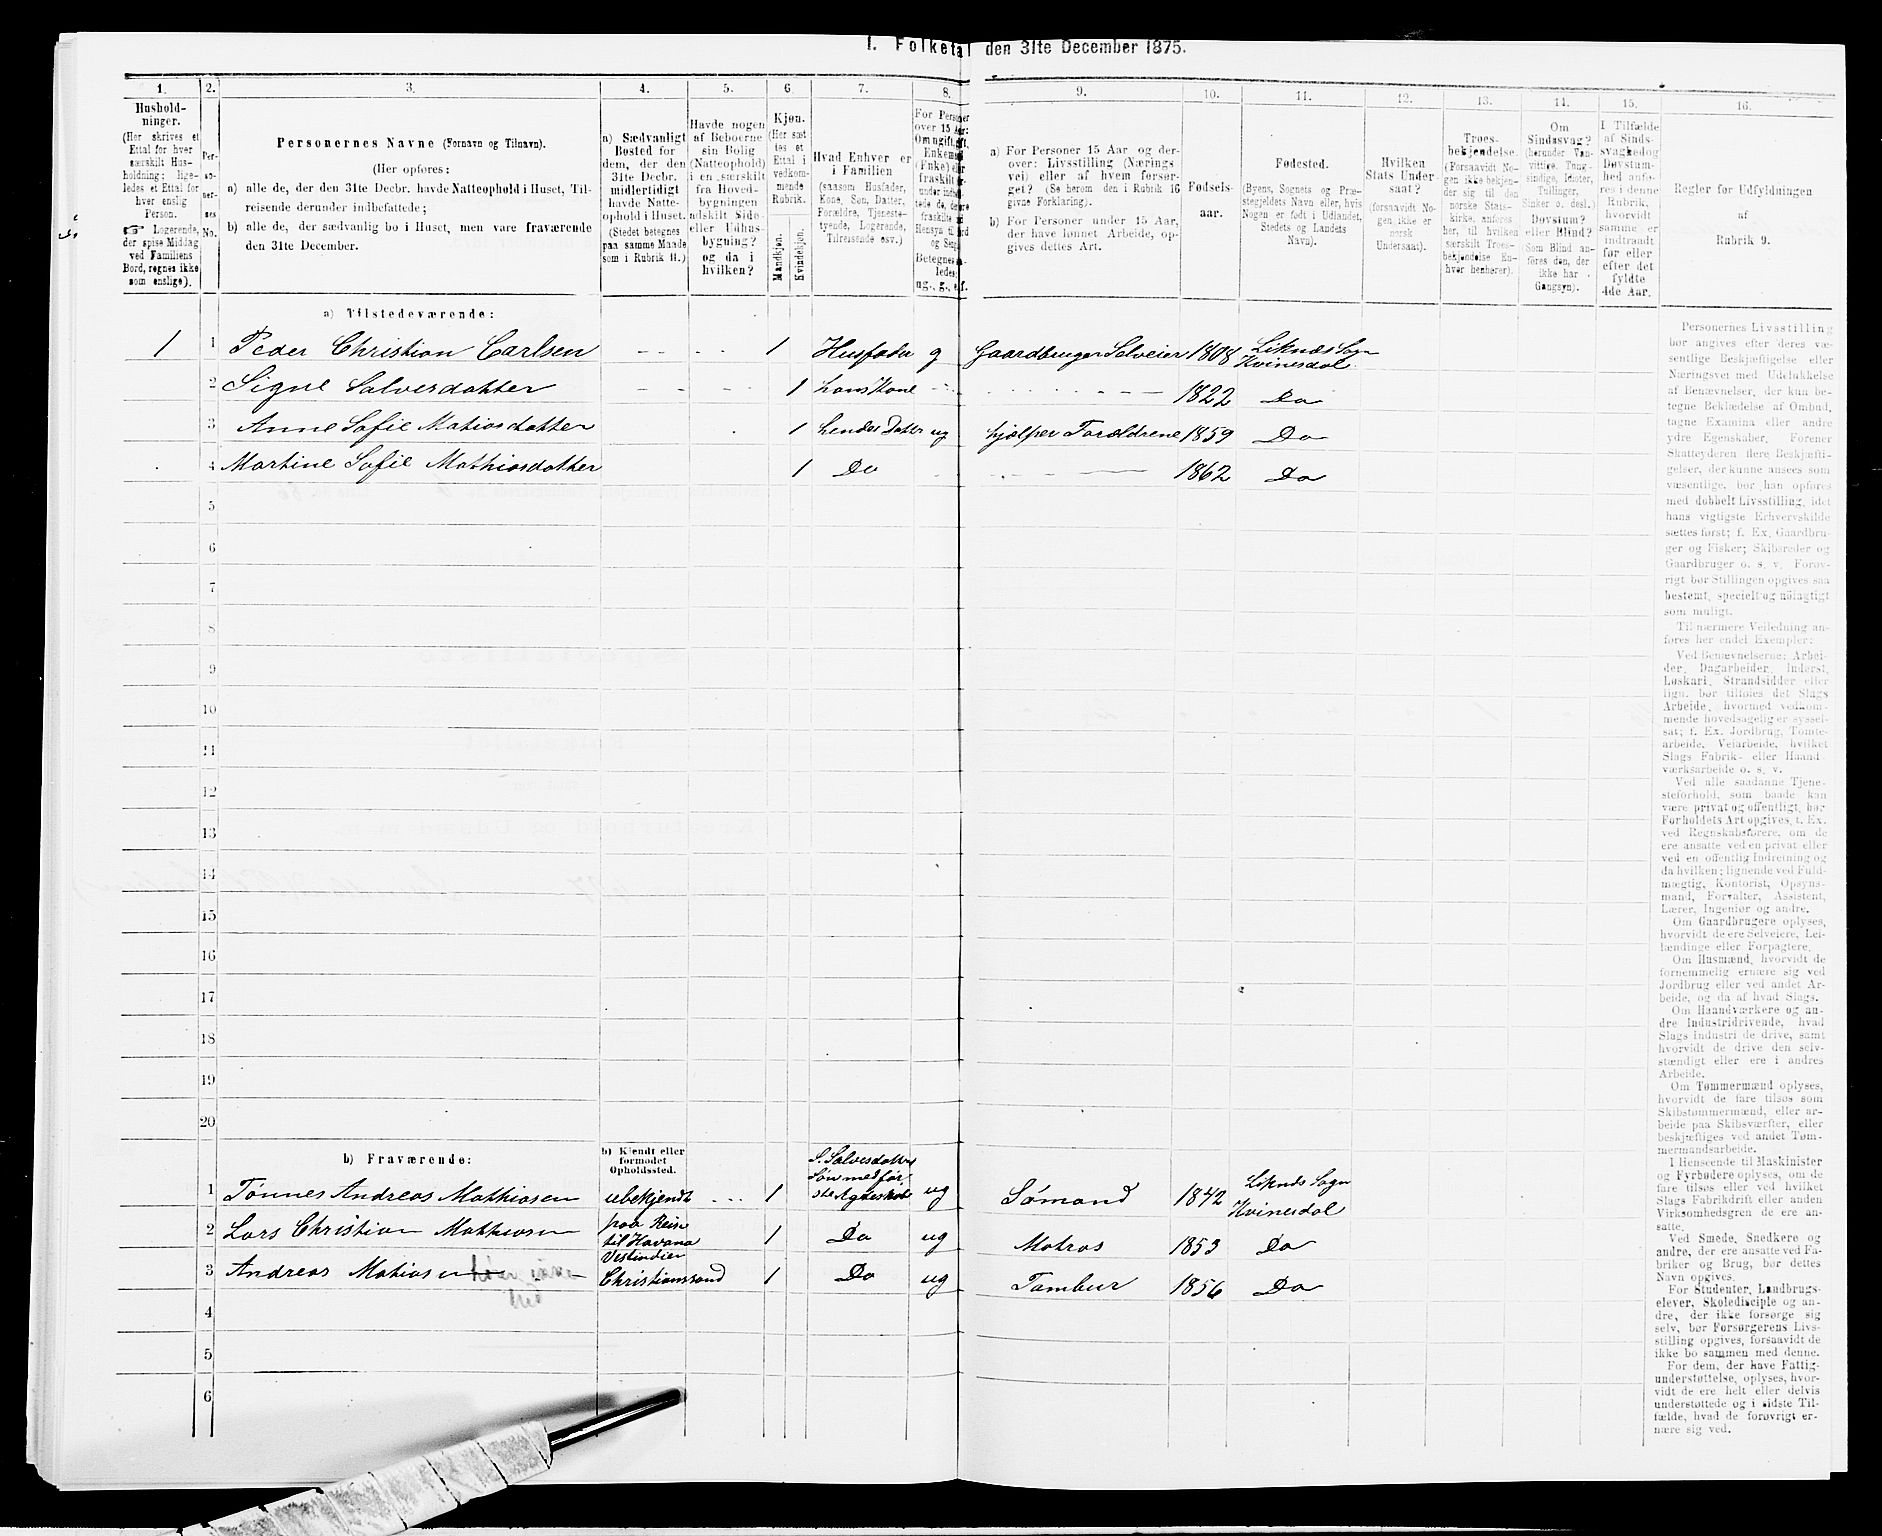 I. Folketal den 31te December 1875.
1.
Hushold-
ninger.
(Her skrives et
Ettal for hver
særskilt Hus-
holdning; lige-
ledes et Ettal for
hver enslig
Person.
☞ Logerende,
der spise Middag
ved Familiens
Bord, regnes ikke
som enslige).
2.
Per-
so-
ner-
nes
No.
3.
Personernes Navne (Fornavn og Tilnavn).
(Her opføres:
a) alle de, der den 31te Decbr. havde Natteophold i Huset, Til-
reisende derunder indbefattede;
b) alle de, der sædvanlig bo i Huset, men vare fraværende
den 31te December.
4.
a) Sædvanligt
Bosted for
dem, der den
31te Decbr.
midlertidigt
havde Natte-
ophold i Huset.
(Stedet betegnes
paa samme Maade
som i Rubrik 11.)
5.
Havde nogen
af Beboerne
sin Bolig
(Natteophold)
i en særskilt
fra Hoved-
bygningen
adskilt Side-
eller Udhus-
bygning?
og da i
hvilken?
6.
Kjøn.
(Her sæt
tes et
Ettal i
vedkom-
mende
Rubrik.
Mandkjøn.
Kvindekjøn.
7.
Hvad Enhver er
i Familien
(saasom Husfader,
Kone, Søn, Datter,
Forældre, Tjeneste-
tyende, Logerende,
Tilreisende osv.)
8.
For Personer
over 15 Aar:
Om ugift, gift,
Enkemand
(Enke) eller
fraskilt
9.
a) For Personer 15 Aar og der-
over: Livsstilling (Nærings
vei) eller af hvem forsør-
get? (Se herom den i Rubrik 16
givne Forklaring).
b) For Personer under 15 Aar,
der have lønnet Arbeide, op-
gives dettes Art.
10.
Fødsels-
aar.
11.
Fødested.
(Byens, Sognets og Præ-
stegjeldets Navn eller, hvis
Nogen er født i Udlandet,
Stedets og Landets
Navn).
12.
Hvilken
Stats Under-
saat?
(forsaavidt No-
gen ikke er
norsk
Undersaat).
13.
Troes-
bekjendelse.
(Forsaavidt No-
gen ikke bekjen-
der sig til den
norske Stats-
kirke, anføres
her, til hvilken
særskilt Troes-
bekjendelse En-
hver henhører).
14.
Om
Sindssvag?
(herunder Van-
vittige, Tung-
sindige, Idioter,
Tullinger,
Sinker o. desl.)
Døvstum?
eller Blind?
(Som Blind an-
føres den, der
ikke har
Gangsyn).
15.
I Tilfælde
af Sinds-
svaghed og
Døvstum-
hed anfø-
res i denne
Rubrik,
hvorvidt
samme er
indtraadt
før eller
efter det
fyldte
4de Aar.
16.
Regler for Udfyldningen
af
Rubrik 9.
a) Tilstedeværende:
1 1 Peder Christian Carlsen 1 Husfader g Gaardbruger Selveier 1808 Liknæs Sogn Kvinesdal
2 Signe Salvesdatter 1 hans Kone 1822 Do
3 Anne Sofie Matiasdatter 1 hendes Datter ug hjælper Forældrene 1859 Do
4 Martine Sofie Mathiasdatter 1 Do 1862 Do
5
6
7
8
9
10
11
12
13
14
15
16
17
18
19
20
b) Fraværende:
b) Kjendt eller
formodet
Opholdssted.
S. Salvesdatters
Søn med før
ste Ægteskab
1 Tønnes Andreas Mathiasen ubekjendt 1 ug Sømand 1842 Liknæs Sogn Kvinesdal
2 Lars Christian Mathiasen paa Reise til Havana Vestindien 1 Do ug Matros 1853 Do
3 Andreas Matiasen Christianssand 1 Do ug Tambur 1856 Do
4
5
6
Personernes Livsstilling
bør angives efter deres væ-
sentlige Beskjæftigelse eller
Næringsvei med Udelukkelse
af Benævnelser, der kun be-
tegne Beklædelse af Ombud,
tagne Examina eller andre
ydre Egenskaber. Forener
Skatteyderen flere Beskjæfti-
gelser, der kunne ansees som
væsentlige, bør han opføres
med dobbelt Livsstilling, idet
hans vigtigste Erhvervskilde
sættes først; f. Ex. Gaardbru-
ger og Fisker; Skibsreder og
Gaardbruger o. s. v. Forøv-
rigt bør Stillingen opgives saa
bestemt, specielt og nøiagtigt
som muligt.
Til nærmere Veiledning an-
føres her endel Exempler:
Ved Benævnelserne: Arbei-
der, Dagarbeider, Inderst,
Løskarl, Strandsidder eller
lign. bør tilføies det Slags
Arbeide, hvormed vedkom-
mende hovedsagelig er syssel-
sat; f. Ex. Jordbrug, Tomte-
arbeide, Veiarbeide, hvilket
Slags Fabrik- eller Haand
værksarbeide o. s. v.
Ved alle saadanne Tjene-
steforhold, som baade kan
være privat og offentligt, bør
Forholdets Art opgives, t. Ex.
ved Regnskabsførere, om de
ere ansatte ved en privat eller
ved en offentlig Indretning og
da hvilken; lignende ved Fuld-
mægtig, Kontorist, Opsyns-
mand, Forvalter, Assistent,
Lærer, Ingeniør og andre.
Om Gaardbrugere oplyses,
hvorvidt de ere Selveiere, Lei-
lændinge eller Forpagtere.
Om Husmænd, hvorvidt de
fornemmelig ernære sig ved
Jordbrug eller ved andet Ar-
beide, og da af hvad Slags.
Om Haandværkere og an-
dre Industridrivende, hvad
Slags Industri de drive, samt
hvorvidt de drive den selv-
stændigt eller ere i andres
Arbeide.
Om Tømmermænd oplyses,
hvorvidt de fare tilsøs som
Skibstømmermænd, eller ar-
beide paa Skibsværfter, eller
beskjæftiges ved andet Tøm-
mermandsarbeide.
I Henseende til Maskinister
og Fyrbødere oplyses, om de
fare tilsøs eller ved hvilket
Slags Fabrikdrift eller anden
Virksomhedsgren de ere an-
satte.
Ved Smede, Snedkere og
andre, der ere ansatte ved Fa-
briker og Brug, bør dettes
Navn opgives.
For Studenter, Landbrugs-
elever, Skoledisciple og an-
dre, der ikke forsørge sig
selv, bør Forsørgerens Livs-
stilling opgives, forsaavidt de
ikke bo sammen med denne.
For dem, der have Fattig-
understøttelse, oplyses, hvor-
vidt de ere helt eller delvis
understøttede og i sidste Til-
fælde, hvad de forøvrigt er-
nære sig ved.